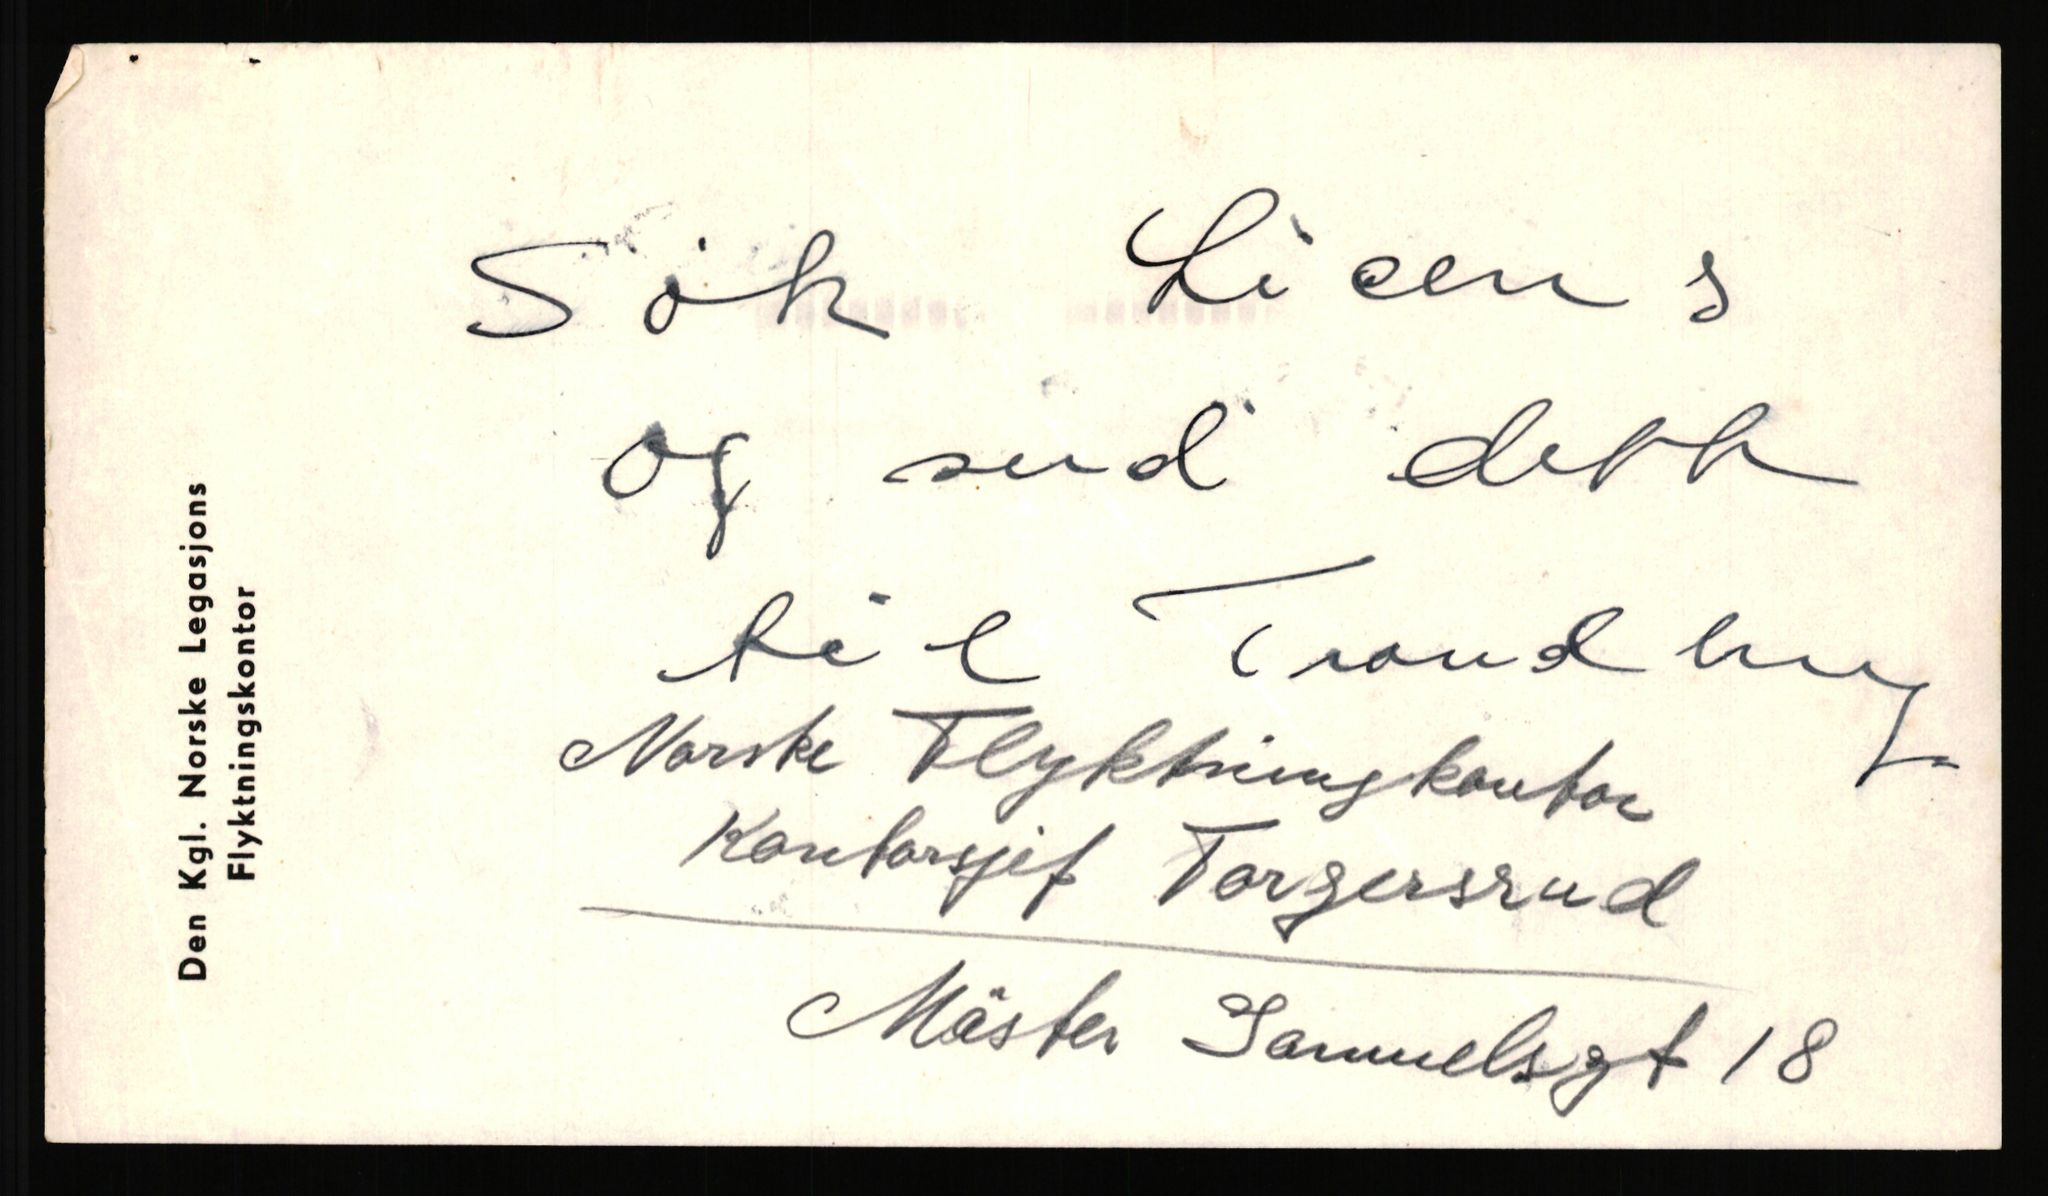 Den Kgl. Norske Legasjons
Flyktningskontor
Søk Licens
og send dette
til Trondhug
Norske Flyktningkontor
Kontorsjef Torgersrud
Mäster Samuelsgt 18